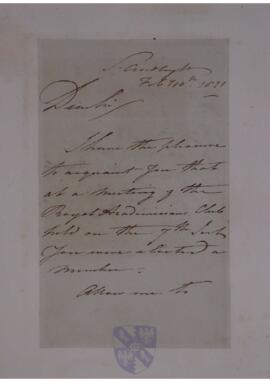 Feb 10th 1831
Dear Sir
I have the pleasure
to acquaint you that
at a meeting of the
Royal Academicians Club
held on the 7th Inst
You were elected a
Member.
Allow me to